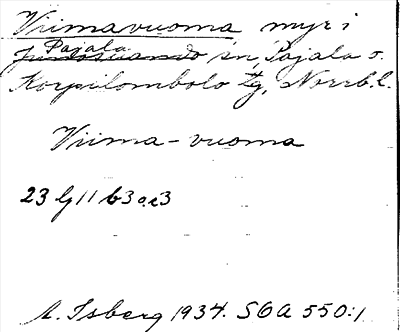 Viimavuoma myr i
Pajala
Junosuando sn, Pajala o.
Korpilombolo tg, Norrb. l.
Viima-vuoma
23 b3 o. c3
A. Isberg 1934. SGA 550:1